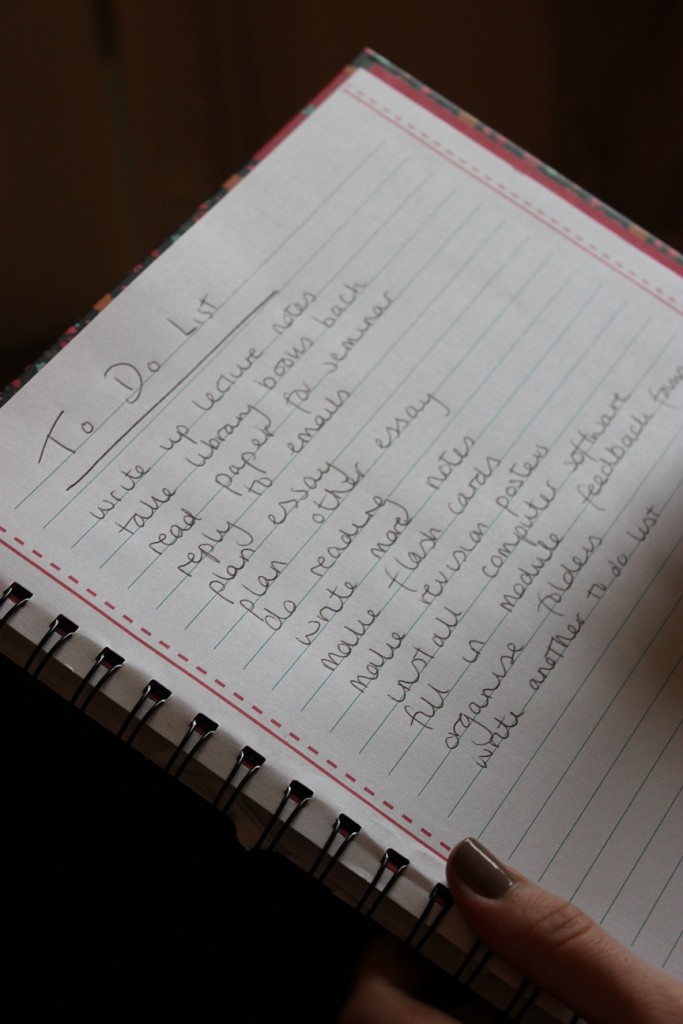 To Do List
write up lecture notes
take library books back
read paper for seminar
reply to emails
plan essay
plan other essay
do reading
write more notes
make flash cards
make revision posters
install computer software
fill in module feedback form
organise folders
write another to do list